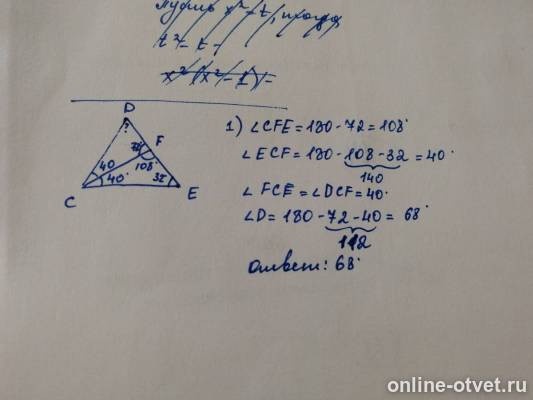 t² - t -
x² (x² - 1) =
D
?
72 F
40 108°
40° 32
C E
1) ∠CFE = 180 - 72 = 108°
∠ECF = 180 - 108 - 32 = 40°
140
∠FCE = ∠DCF = 40°
∠D = 180 - 72 - 40 = 68°
112
Ответ: 68°
online-otvet.ru